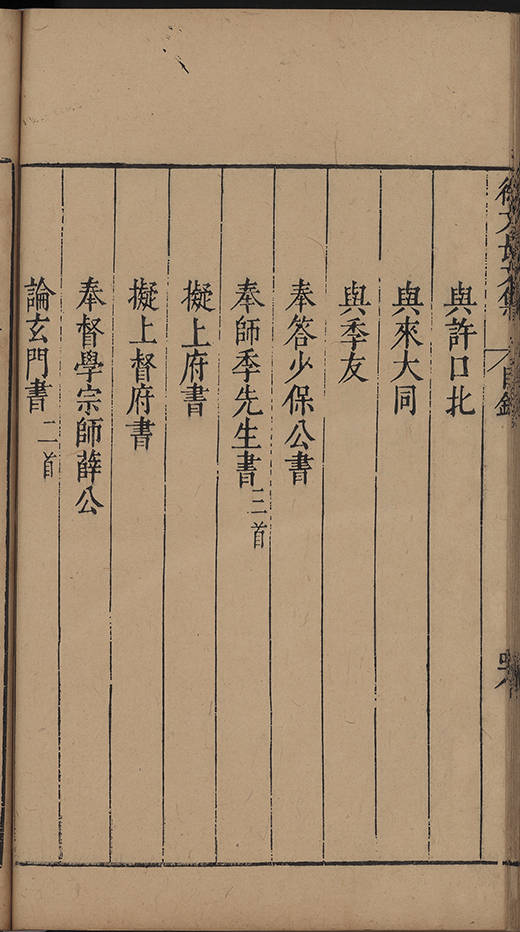 徐文長文集
目錄
與許口北
與來大同
與季友
奉答少保公書
奉師季先生書 三首
擬上府書
擬上督府書
奉督學宗師薛公
論玄門書 二首